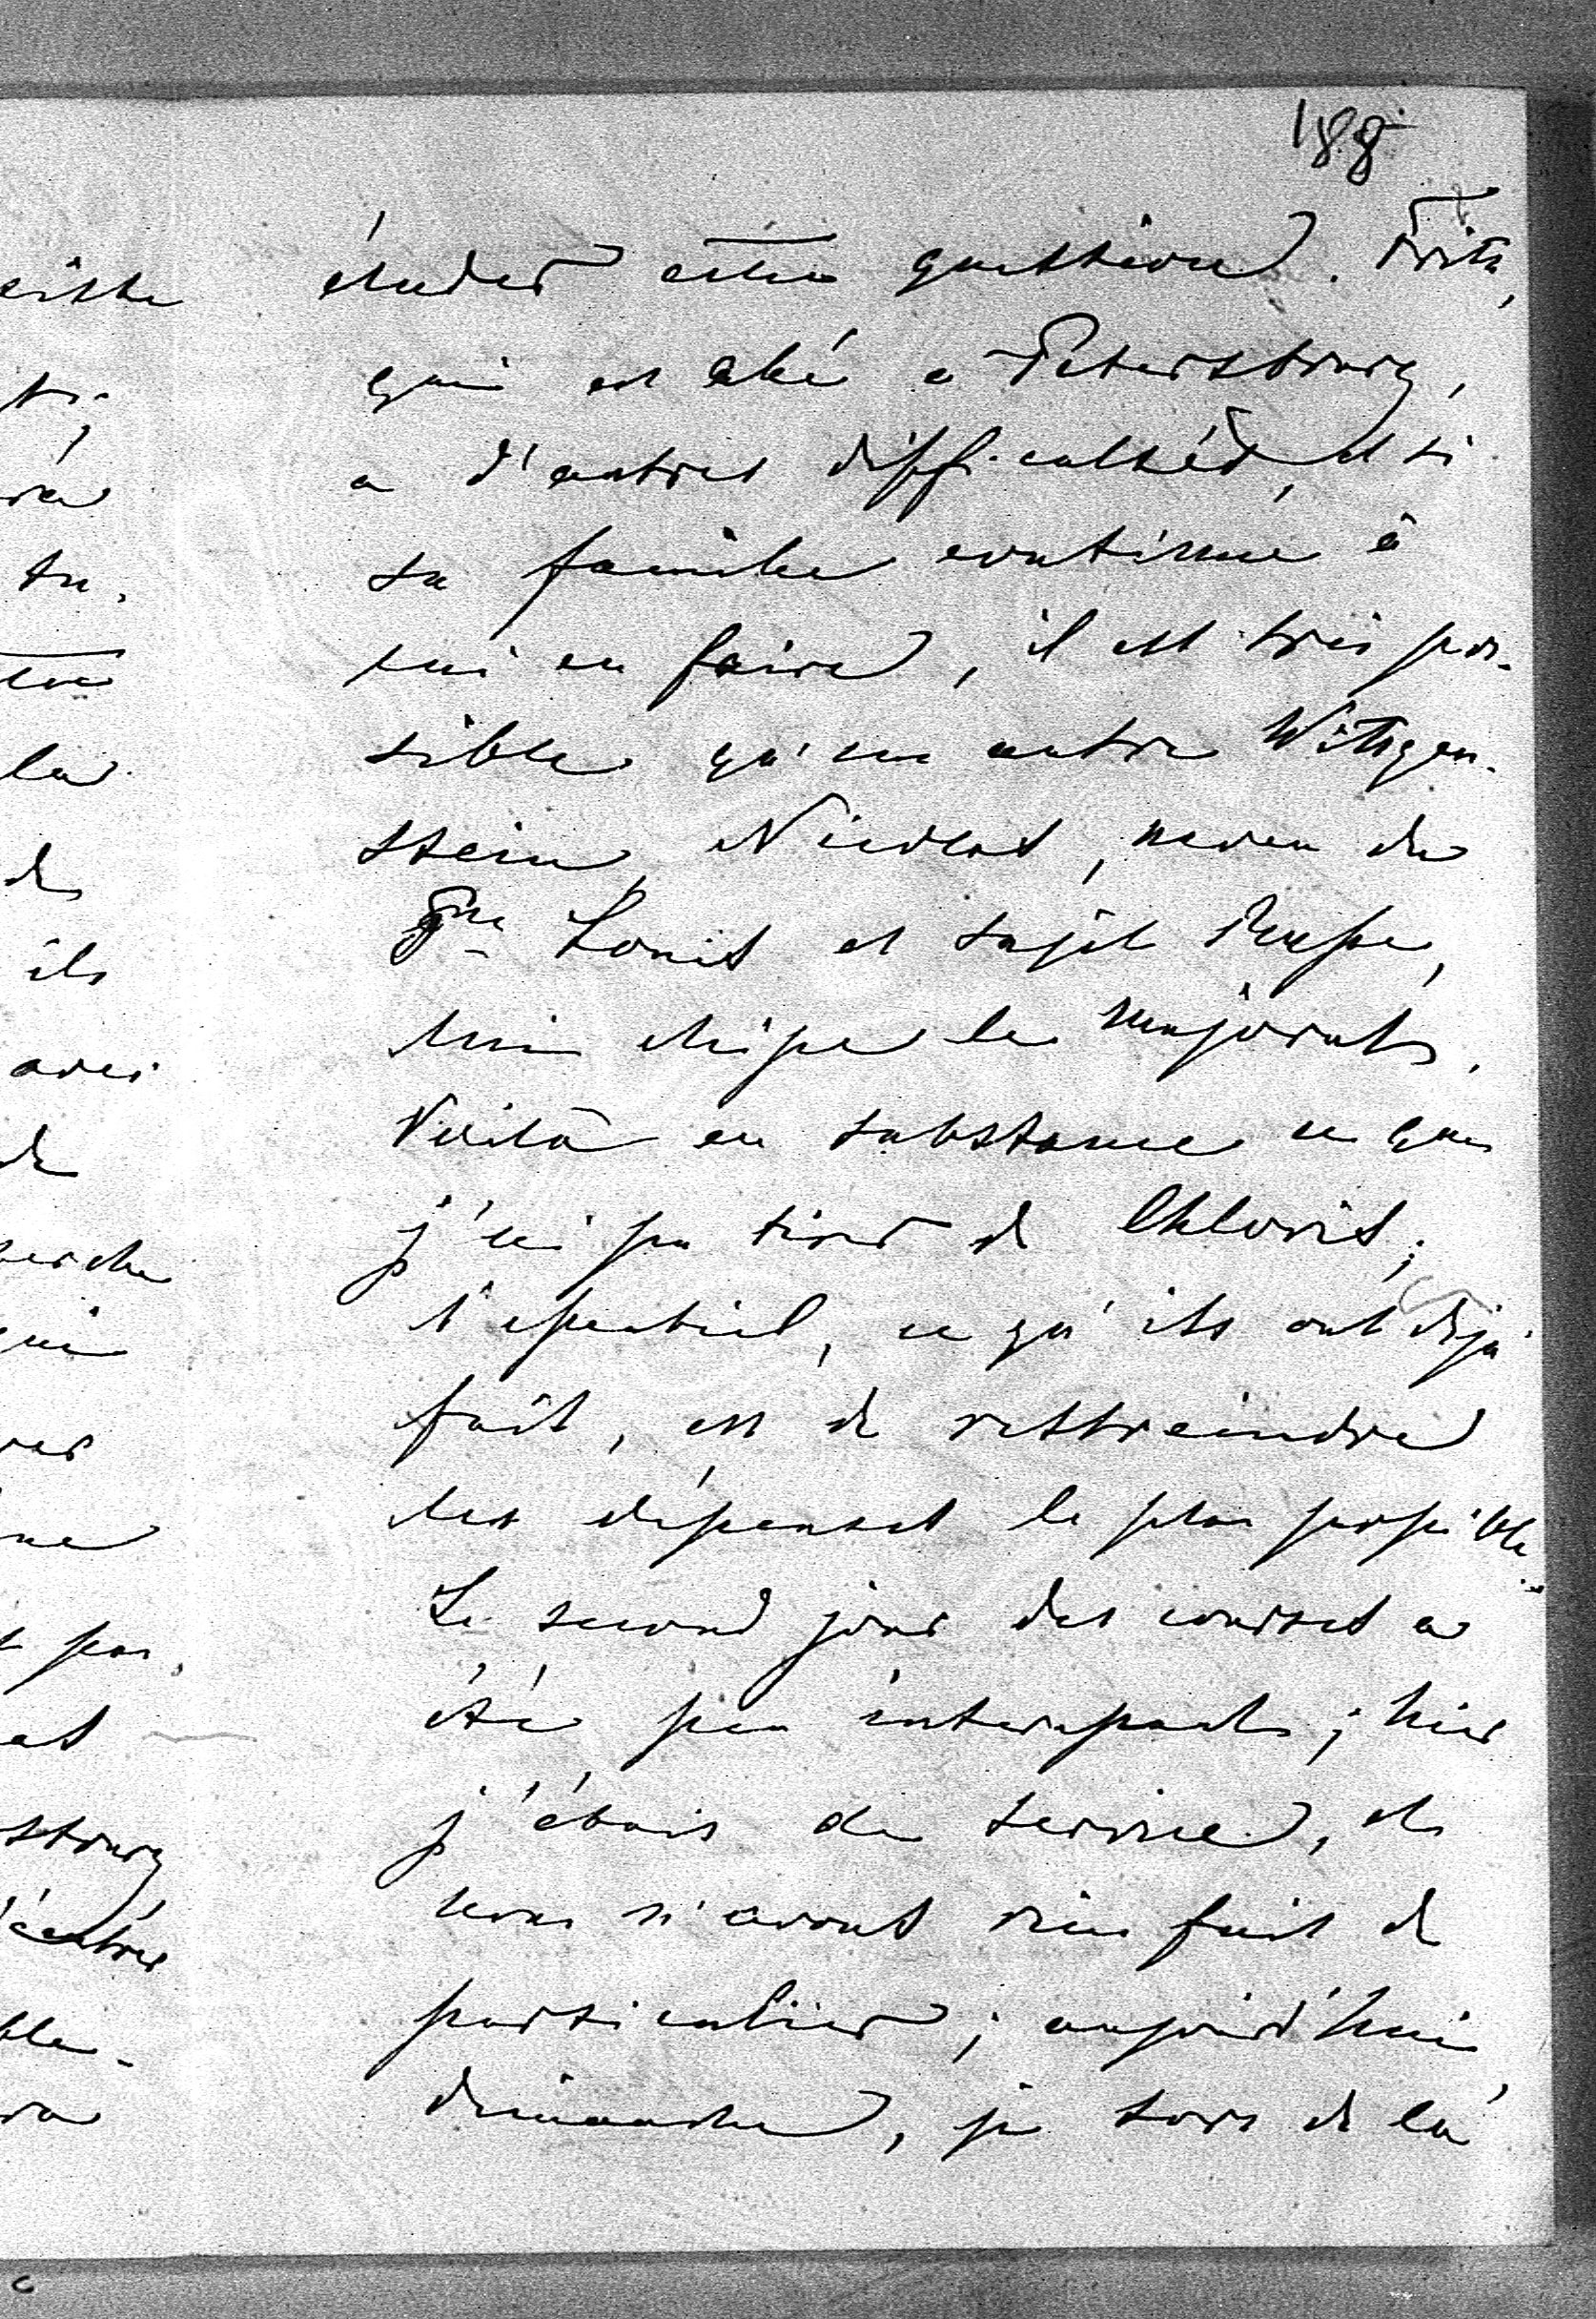 188
éluder cette question. Fritz,
qui est allé à Petersbourg,
a d'autres difficultés, et si
sa famille continue à
lui en faire, il est très pos-
sible qu'un autre Wittgen-
stein, Nicolas, neveu du
Pce Louis et sujet Russe,
lui chipe le majorat.
Voilà en substance ce que
j'ai pu tirer de Chloris;
l'essentiel, ce qu'ils ont déjà
fait, est de restreindre
les dépenses le plus possible.
Le second jour des courses a
été peu intéressant; hier
j'étais de service, et
nous n'avons rien fait de
particulier; aujourd'hui
dimanche, je sors de la